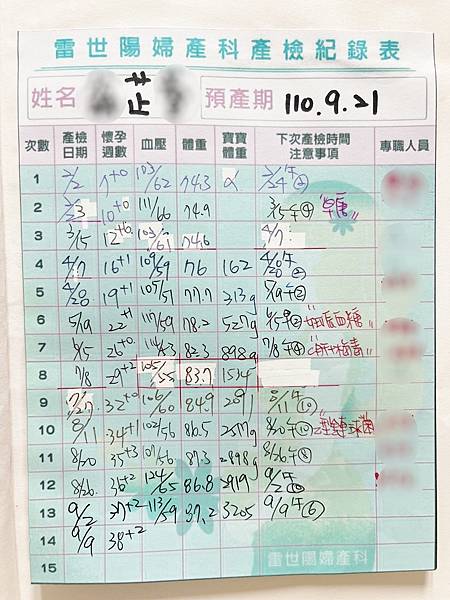 雷世陽婦產科產檢紀錄表
姓名 芷 預產期 110.9.21
次數 產檢日期 懷孕週數 血壓 體重 寶寶體重 下次產檢時間注意事項 專職人員
1 2/2 7+0 103/62 74.3
2 10+0 111/66 74.9 3/15 "早糖"
3 3/15 12+6 74.6 4/7
4 4/7 16+1 109/59 76 162 4/20
5 4/28 19+1 105/57 77.7 313g 5/19
6 5/19 22+1 117/59 78.2 527g 6/15 "妊娠血糖"
7 6/15 26+0 82.3 898g 7/8 "C肝+梅毒"
8 7/8 29+2 105/55 83.7 1534
9 7/27 32+0 106/60 84.9 8/11
10 8/11 34+1 102/56 86.5 2577g 8/20 鏈球菌
11 8/20 35+3 107/56 87.3 2898g 8/26
12 8/26 36+2 124/65 86.8 2919 9/2
13 9/2 37+2 113/59 87.2 3205 9/9
14 9/9 38+2
15
雷世陽婦產科